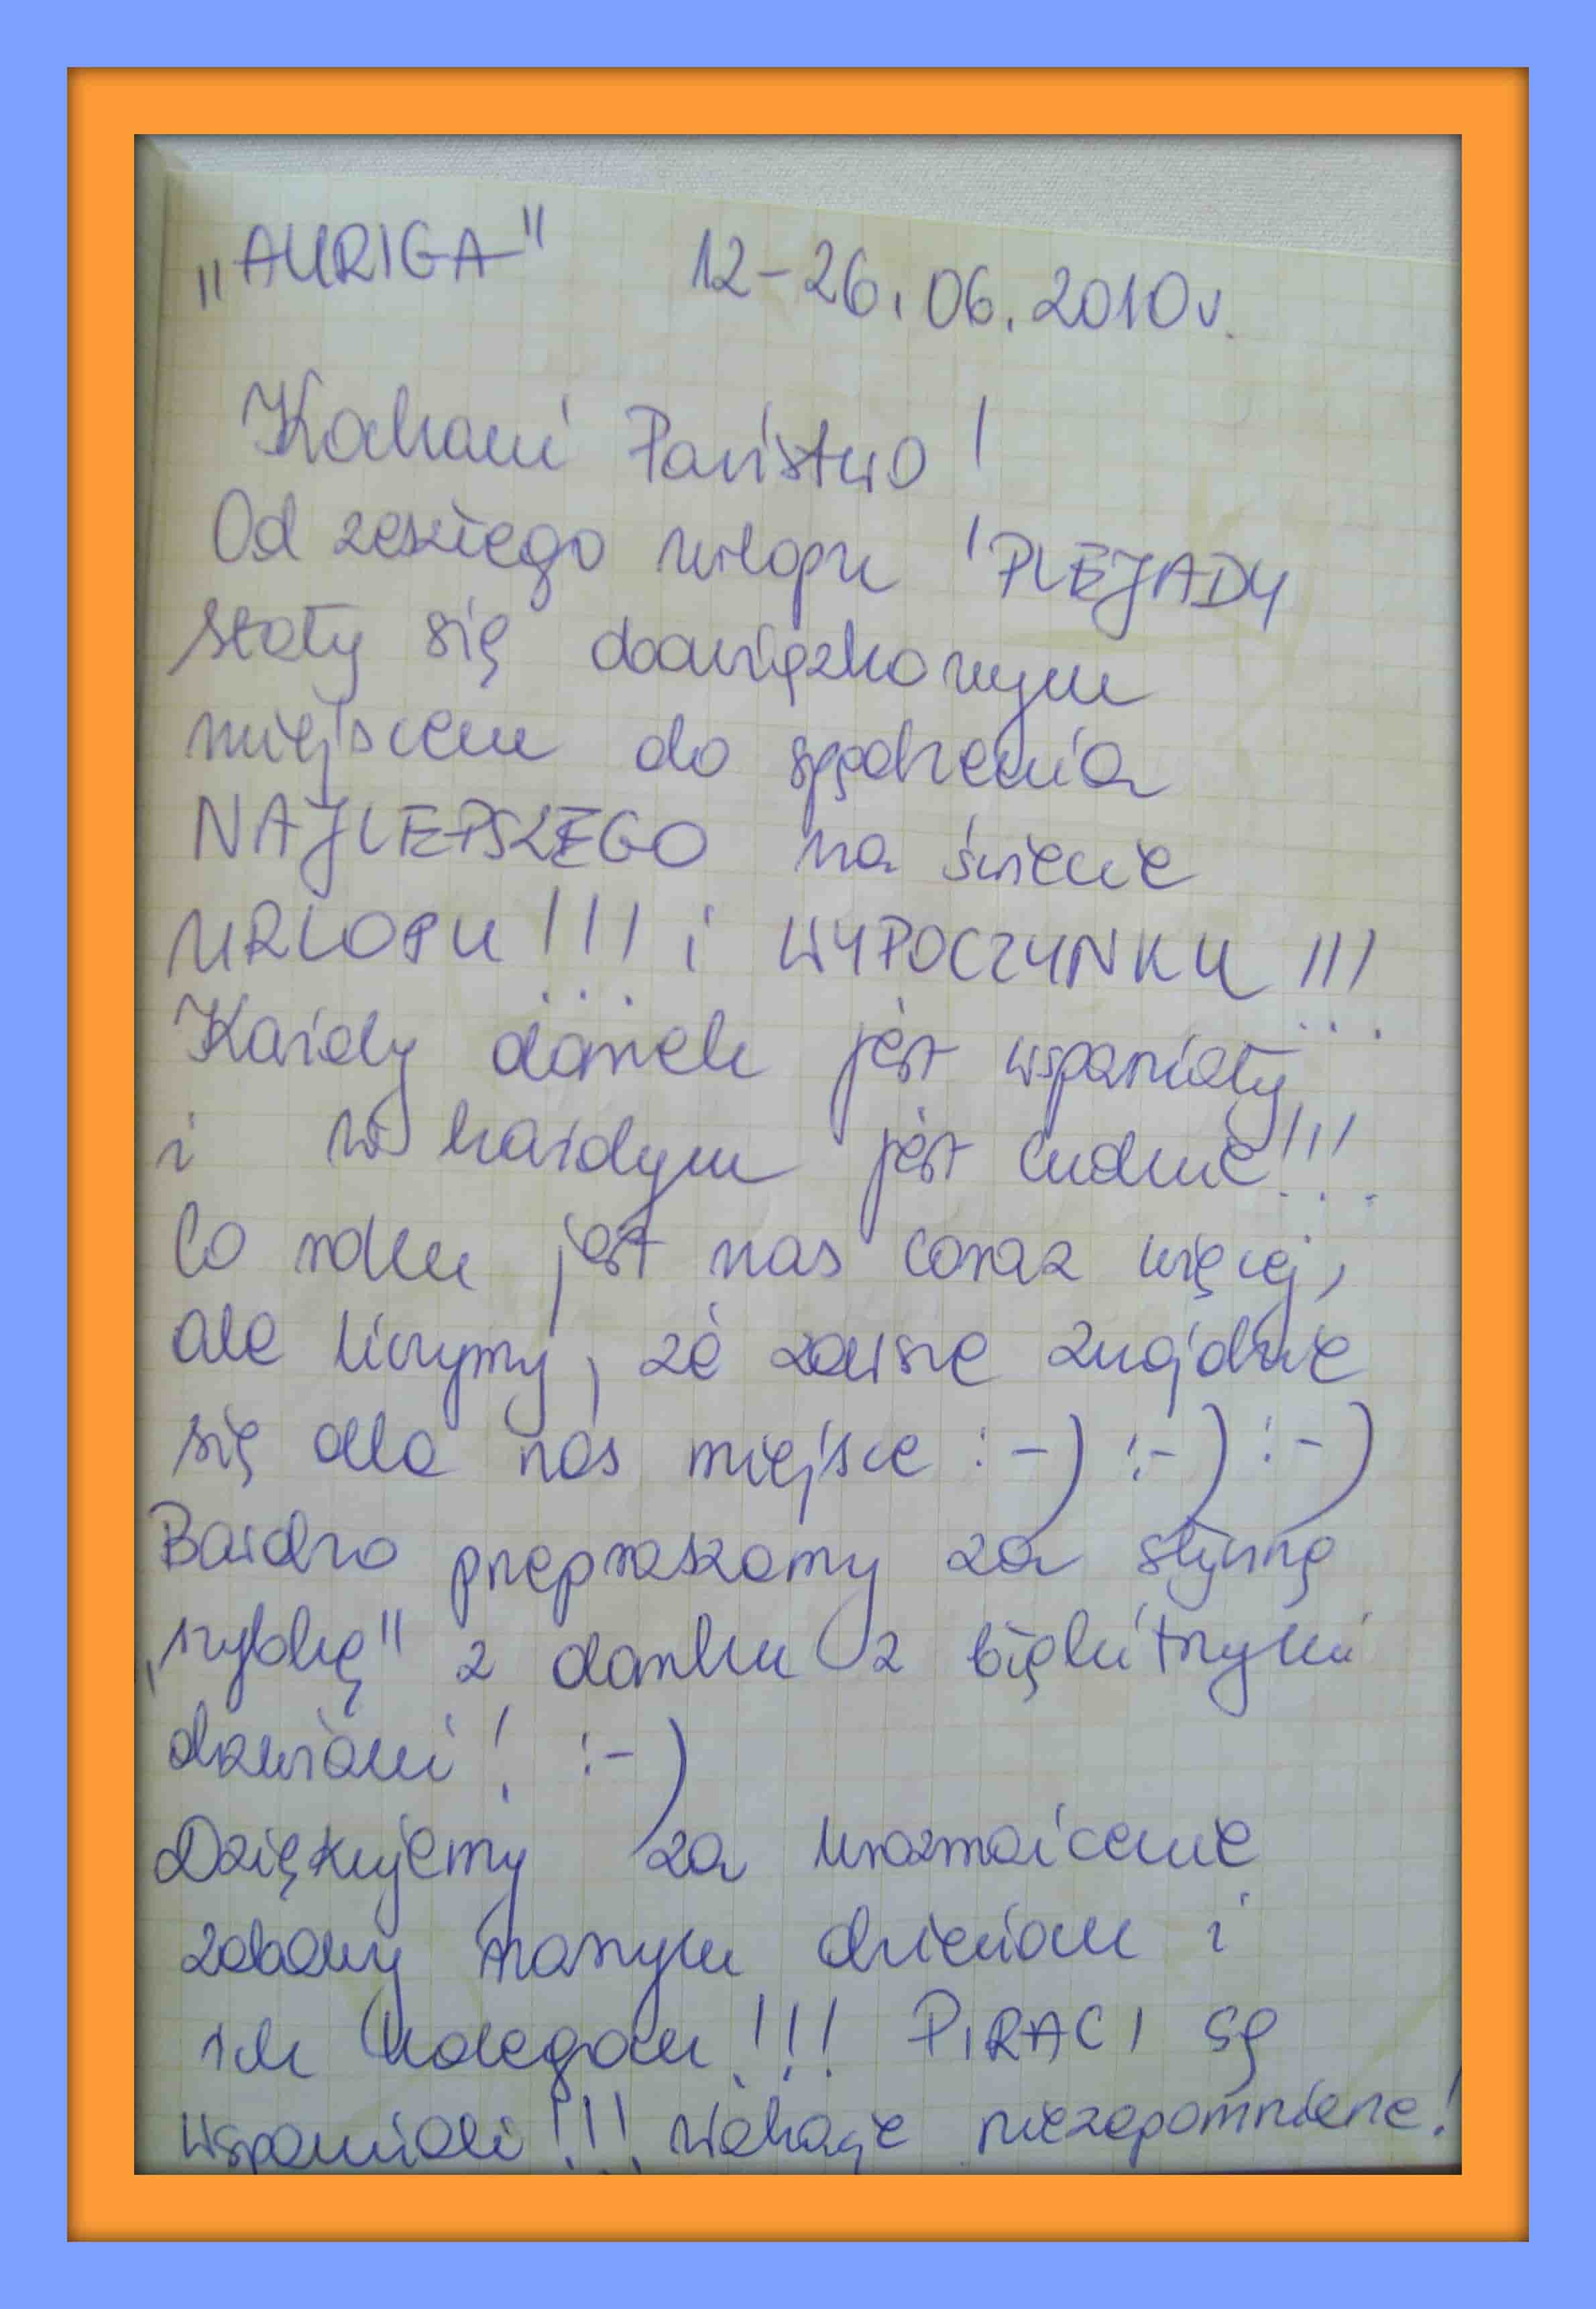 „AURIGA" 12-26.06.2010r.
Kochani Państwo!
Od zeszłego urlopu 'PLEJADY
stały się obowiązkowym
miejscem do spędzenia
NAJLEPSZEGO na świecie
URLOPU!!! i WYPOCZYNKU!!!
Każdy domek jest wspaniały
i w każdym jest cudnie!!!
Co roku jest nas coraz więcej,
ale liczymy, że zawsze znajdzie
się dla nas miejsce :-) :-) :-)
Bardzo przepraszamy za słynną
„rybkę" z domku z błękitnymi
drzwiami! :-)
Dziękujemy za urozmaicenie
zabawy naszym dzieciom i
ich kolegom!!! PIRACI są
wspaniali!!! Wakacje niezapomniane!